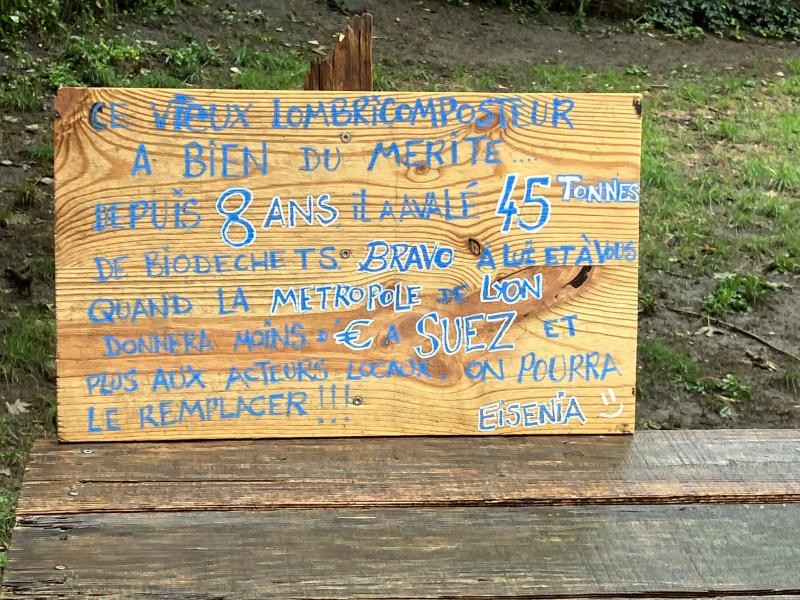 CE VIEUX LOMBRICOMPOSTEUR
A BIEN DU MERITE....
DEPUIS 8 ANS iL A AVALÉ 45 TONNES
DE BIODECHETS. BRAVO À LUI ET À VOUS
QUAND LA METROPOLE DE LYON
DONNERA MOINS D'€ A SUEZ ET
PLUS AUX ACTEURS LOCAUX, ON POURRA
LE REMPLACER !!!
EiSENiA :)